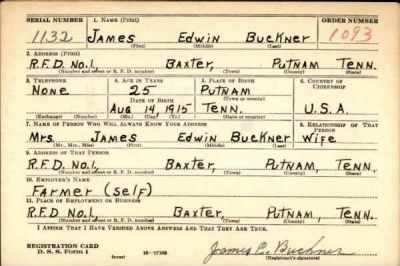 SERIAL NUMBER 1. NAME (Print) ORDER NUMBER
1132 James Edwin Buckner 1093
(First) (Middle) (Last)
2. ADDRESS (Print)
R.F.D. No.1, Baxter, Putnam Tenn.
(Number and street or R. F. D. number) (Town) (County) (State)
3. TELEPHONE 4. AGE IN YEARS 5. PLACE OF BIRTH 6. COUNTRY OF CITIZENSHIP
None 25 Putnam
DATE OF BIRTH (Town or county)
Aug 14 1915 Tenn. U.S.A.
(Exchange) (Number) (Mo.) (Day) (Yr.) (State or country)
7. NAME OF PERSON WHO WILL ALWAYS KNOW YOUR ADDRESS 8. RELATIONSHIP OF THAT PERSON
Mrs. James Edwin Buckner Wife
(Mr., Mrs., Miss) (First) (Middle) (Last)
9. ADDRESS OF THAT PERSON
R.F.D. No.1, Baxter, Putnam, Tenn.
(Number and street or R. F. D. number) (Town) (County) (State)
10. EMPLOYER'S NAME
Farmer (self)
11. PLACE OF EMPLOYMENT OR BUSINESS
R.F.D. No.1, Baxter, Putnam, Tenn.
(Number and street or R. F. D. number) (Town) (County) (State)
I AFFIRM THAT I HAVE VERIFIED ABOVE ANSWERS AND THAT THEY ARE TRUE.
REGISTRATION CARD
D. S. S. Form 1 (over) 16—17105 James E. Buckner
(Registrant's signature)